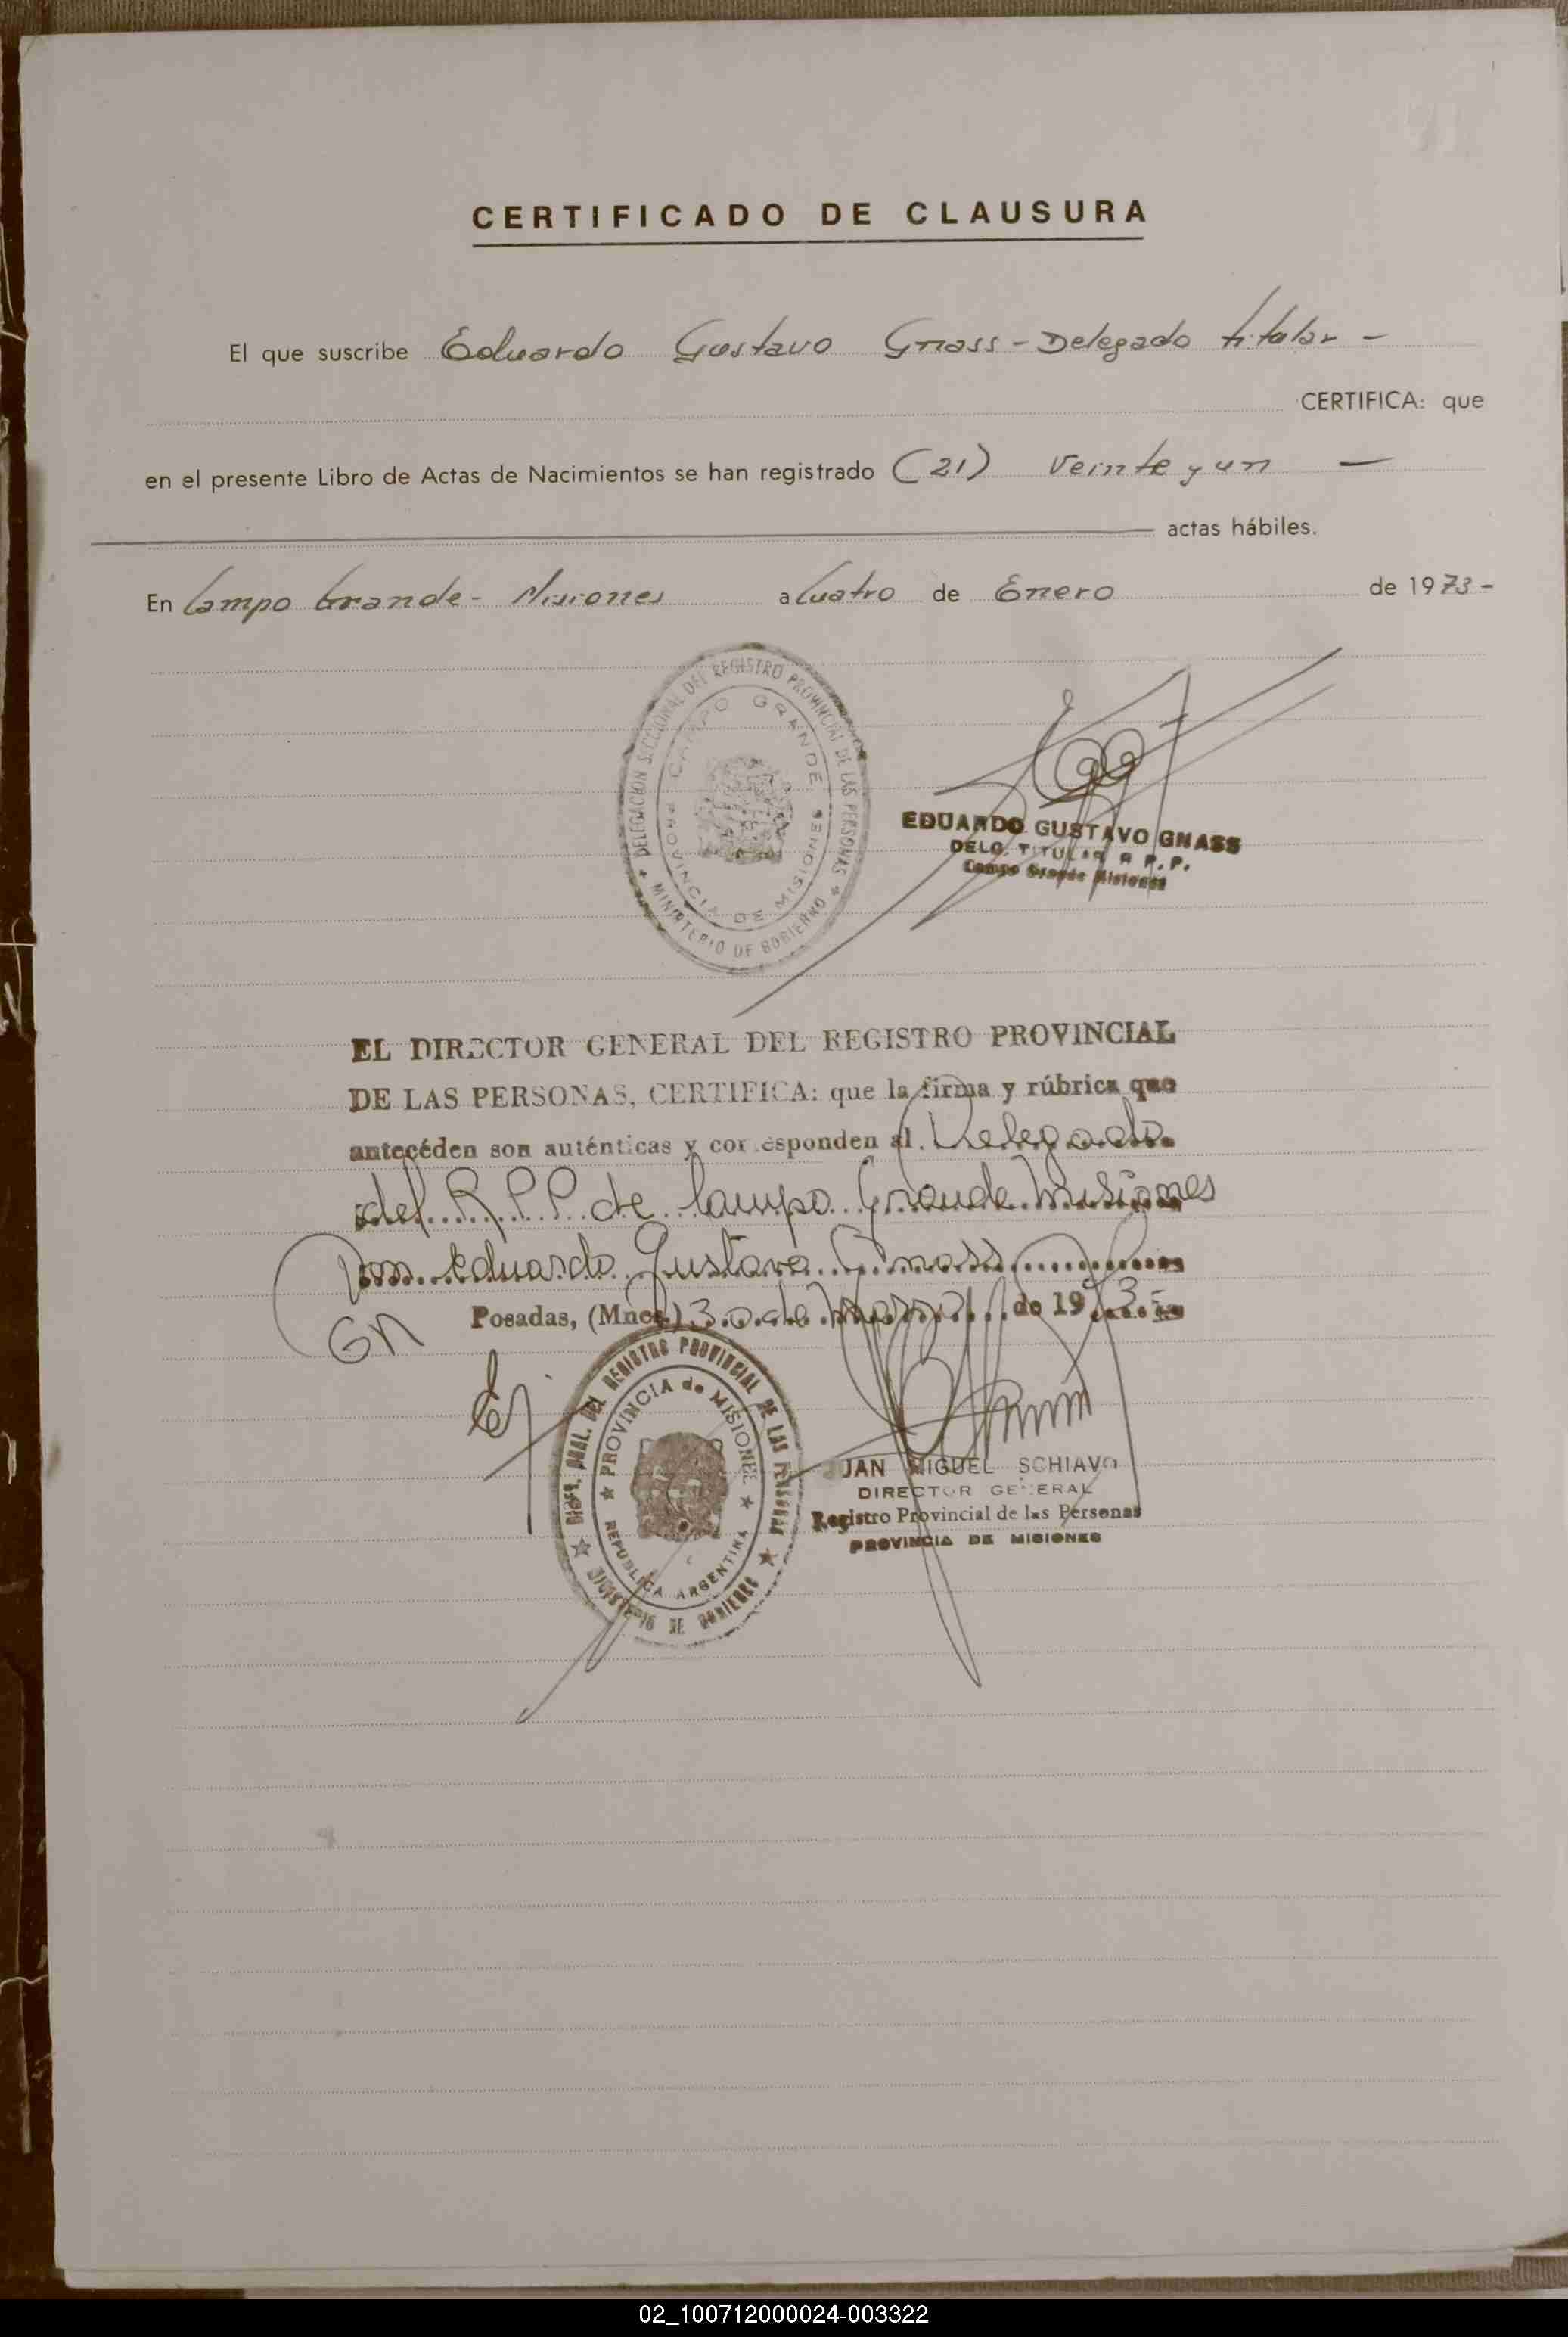 CERTIFICADO DE CLAUSURA
El que suscribe Eduardo Gustavo Gnass - Delegado titular -
CERTIFICA: que
en el presente Libro de Actas de Nacimientos se han registrado (21) Veinte y un —
actas hábiles.
En Campo Grande - Misiones a Cuatro de Enero de 1973 -
DELEGACION SECCIONAL DEL REGISTRO PROVINCIAL DE LAS PERSONAS
MINISTERIO DE GOBIERNO
CAMPO GRANDE
PROVINCIA DE MISIONES
EDUARDO GUSTAVO GNASS
DELG. TITULAR R. P. P.
Campo Grande Misiones
EL DIRECTOR GENERAL DEL REGISTRO PROVINCIAL
DE LAS PERSONAS, CERTIFICA: que la firma y rúbrica que
antecéden son auténticas y corresponden al Delegado
del R.P.P. de Campo Grande Misiones
Don Eduardo Gustavo Gnass
Posadas, (Mnes.) 30 de Marzo de 1973-
GN
DIREC. GRAL. DEL REGISTRO PROVINCIAL DE LAS PERSONAS
PROVINCIA de MISIONES
REPUBLICA ARGENTINA
MINISTERIO DE GOBIERNO
JUAN MIGUEL SCHIAVO
DIRECTOR GENERAL
Registro Provincial de las Personas
PROVINCIA DE MISIONES
02_100712000024-003322